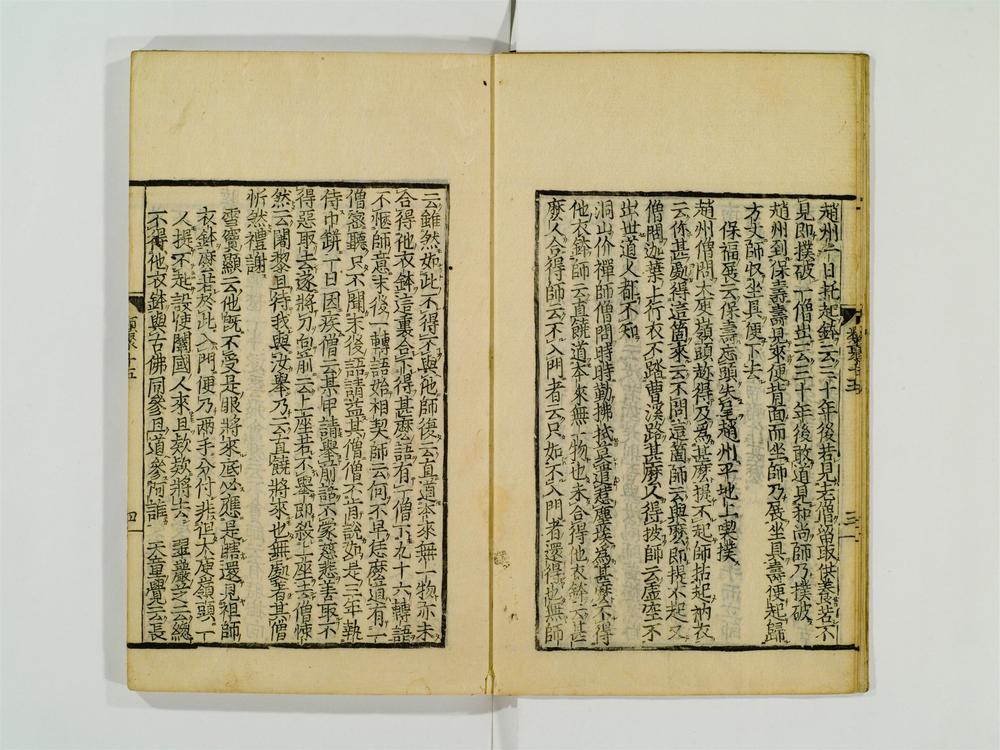 趙州一日托起鉢云三十年後若見老僧留取供養若不
見即撲破一僧出云三十年後敢道見和尚師乃撲破
趙州到保壽壽見來便背面而坐師乃展坐具壽便起歸
方丈師収坐具便下去
保福展云保壽忘頭失尾趙州平地上喫撲
趙州僧問大庾嶺頭趂得及為甚麼提不起師拈起衲衣
云你甚處得這箇來云不問這箇師云與麼即提不起又
僧問迦葉上行衣不踏曹溪路甚麼人得披師云虛空不
出世道人都不知
洞山价禪師僧問時時勤拂拭莫遣惹塵埃為甚麼不得
他衣鉢師云直饒道本來無一物也未合得他衣鉢云甚
麼人合得師云不入門者云只如不入門者還得也無師
云雖然如此不得不與他師復云直道本來無一物亦未
合得他衣鉢這裏合下得甚麼語有一僧下九十六轉語
不愜師意末後一轉語始相契師云何不早恁麼道有一
僧密聽只不聞末後語請益其僧僧不肯說如是三年執
侍巾缾一日因疾僧云某甲請舉前話不蒙慈悲善取不
得惡取去遂將刀向前云上座若不舉即殺上座去僧悚
然云闍黎且待我與汝舉乃云直饒將來也無處著其僧
忻然禮謝
雪竇顯云他旣不受是眼將來底必應是瞎還見祖師
衣鉢麼若於此入門便乃兩手分付非但大庾嶺頭一
人提不起設使闔國人來且欵欵將去 翠巖芝云總
不得他衣鉢與古佛同參且道參阿誰 天童覺云長
三
四